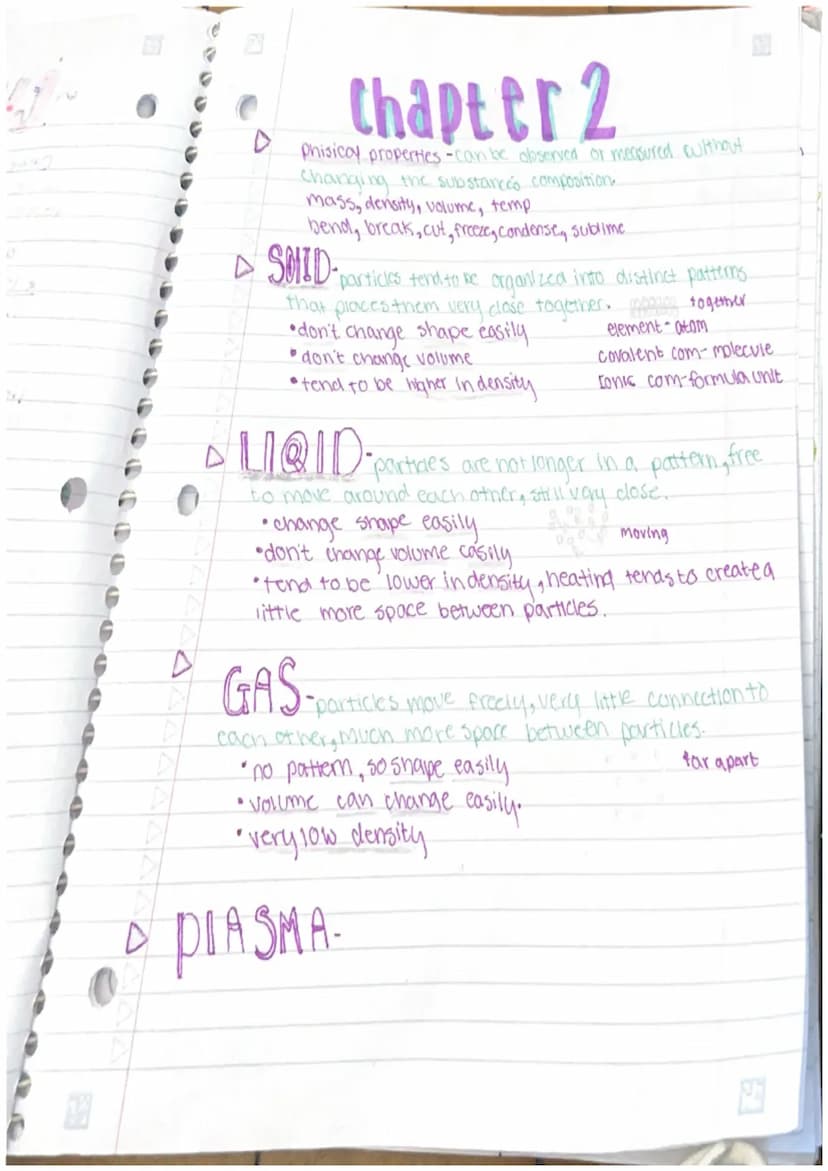 Chapter 2
phisical properties - can be observed or measured without
changing the substance's composition.
mass, density, volume, temp
bend, break, cut, freeze, condense, sublime
SOlID - particles tend to be organized into distinct patterns
that places them very close together.
together
• don't change shape easily
element - atom
• don't change volume
covalent com - molecule
• tend to be higher in density
Ionic com - formula unit
LIQID - particles are not longer in a pattern, free
to move around each other, still vary close.
• change shape easily
moving
• don't change volume easily
• tend to be lower in density, heating tends to create a
little more space between particles.
GAS - particles move freely, very little connection to
each other, much more space between particles.
• no pattern, so shape easily
far apart
• volume can change easily.
• very low density
PlASMA -